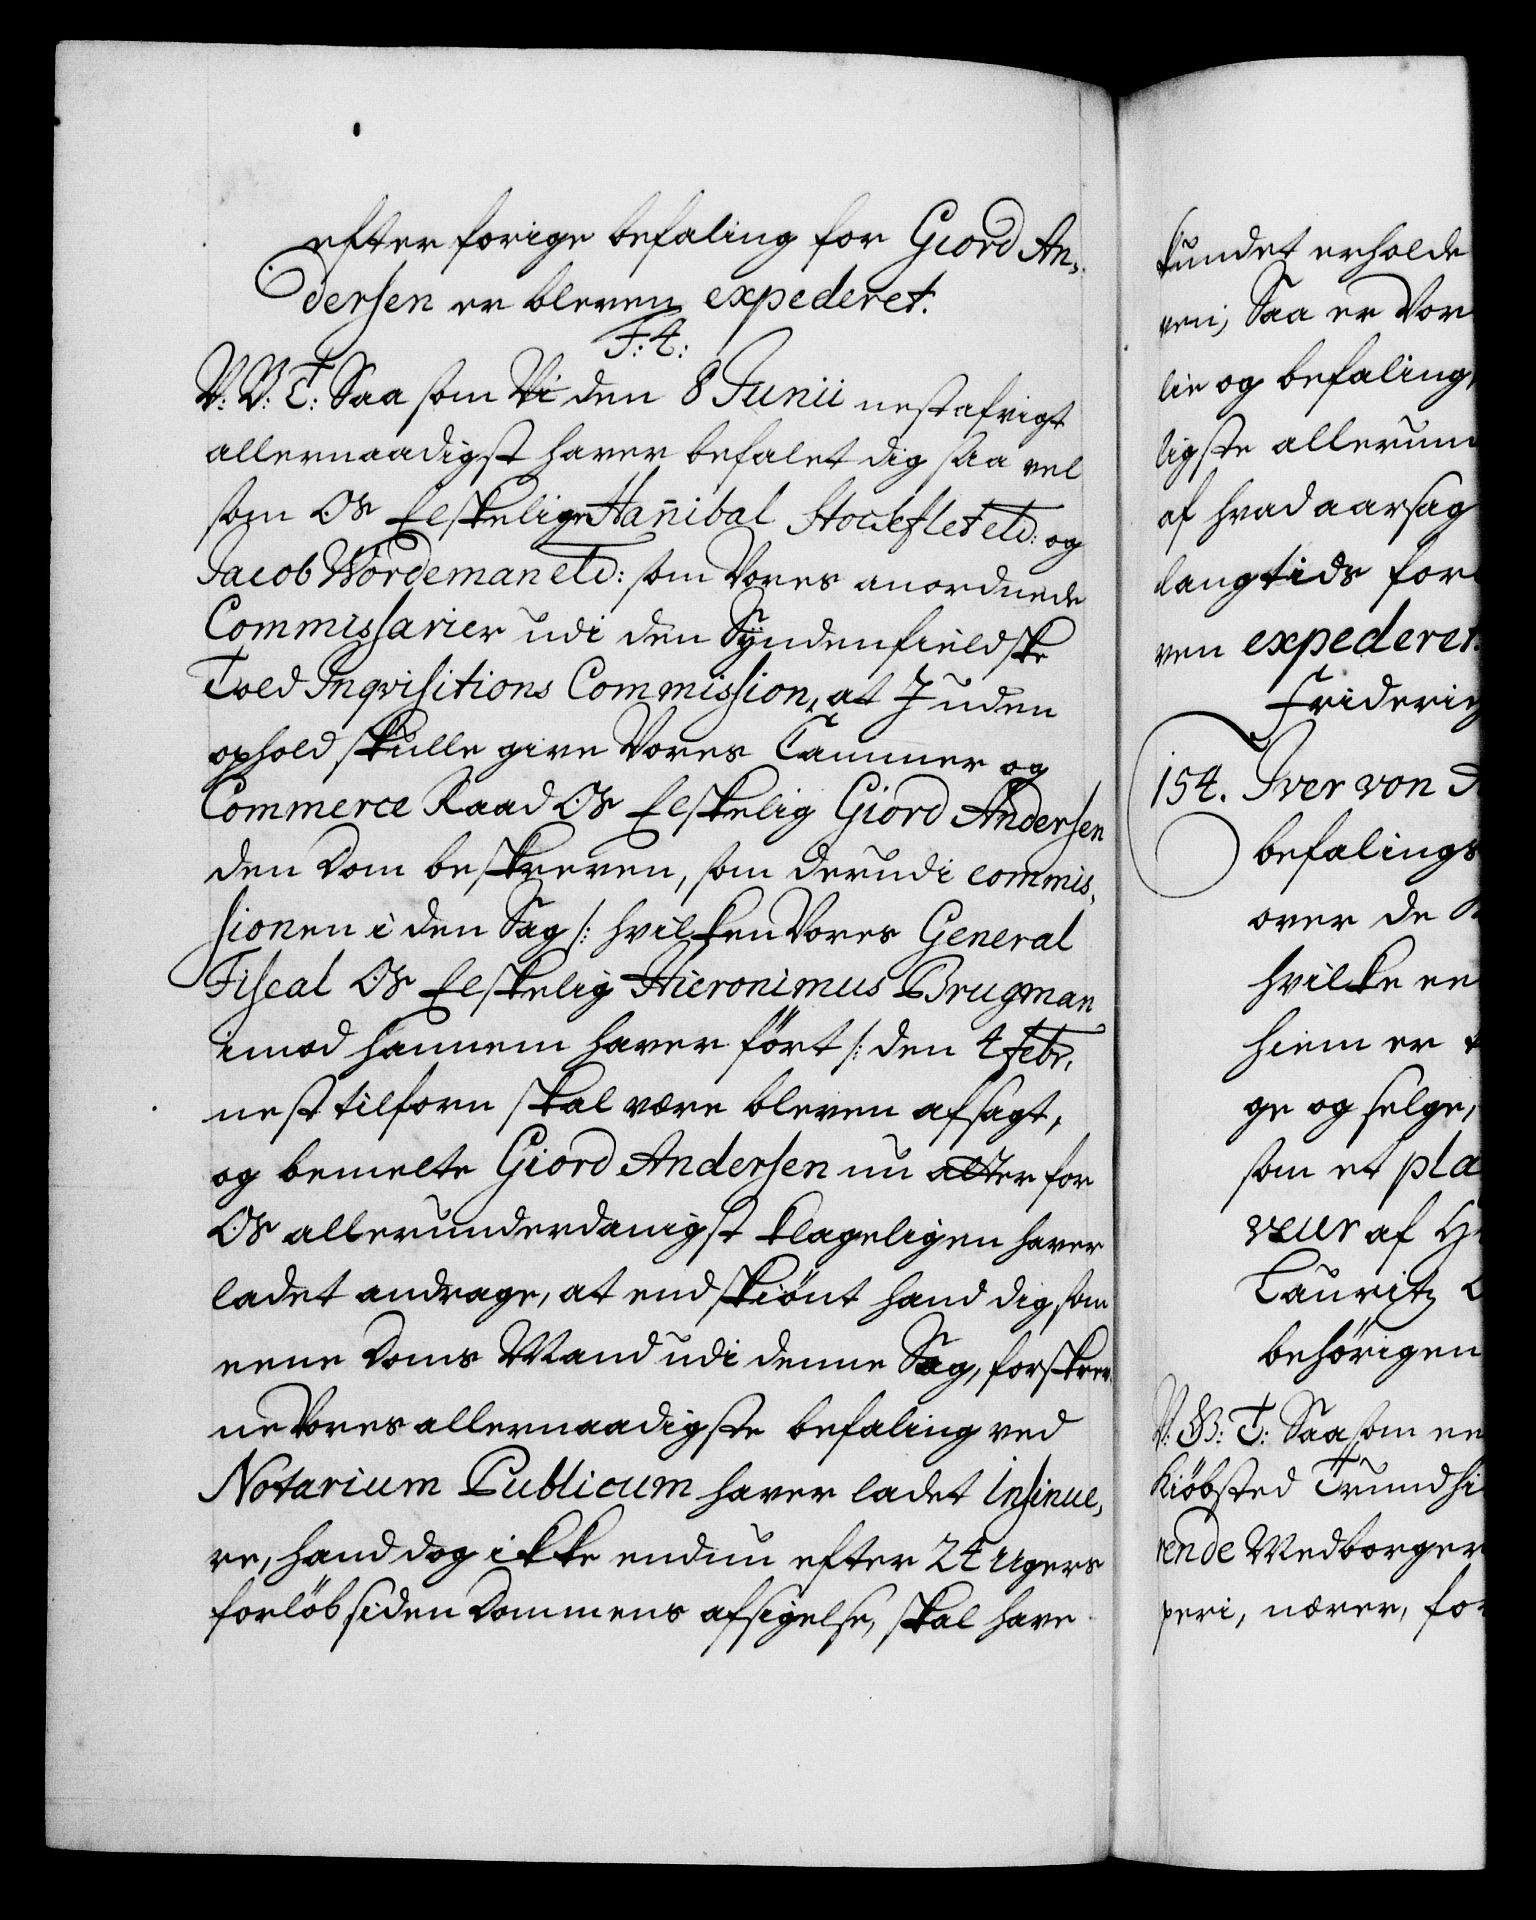 efter forige befaling for Giord An-
dersen er bleven expederet.
F: 4:
V: V: T: Saasom Vi den 8 Junii nestafvigt
allernaadigst haver befalet dig saa vel
som Os Elskelige Hannibal Stockflet etc: og
Jacob Wördeman etc: som Vores anordnede
Commissarier udi den Syndenfieldske
Told Inqvisitions Commission, at I uden
ophold skulle give Vores Cammer og
Commerce Raad Os Elskelig Giord Andersen
den Dom beskreven, som derudi commis-
sionen i den Sag /: hvilken Vores General
Fiscal Os Elskelig Hieronimus Brugman
imod hannem haver fört /: den 4 Febr.
nest tilforn skal være bleven afsagt,
og bemelte Giord Andersen nu atter for
Os allerunderdanigst klageligen haver
ladet andrage, at endskiönt hand dig som
eene Doms Mand udi denne Sag, forskrev-
ne Vores allernaadigste befaling ved
Notarium Publicum haver ladet insinue-
re, hand dog ikke endnu efter 24 Ugers
forlöb siden Dommens afsigelse, skal have
kundet erholde
ven; Saa er Vor
lie og befaling,
ligste allerun
af hvad aarsag
langtids for
ven expederet.
Friderig
154. Iver von
befalings
over de
hvilke en
hiem er
ge og selge,
som et pla
veur af
Lauritz
behörigen
V: V: T: Saasom en
Kiöbsted Trundhi
rende Medborger
peri, nærer, for